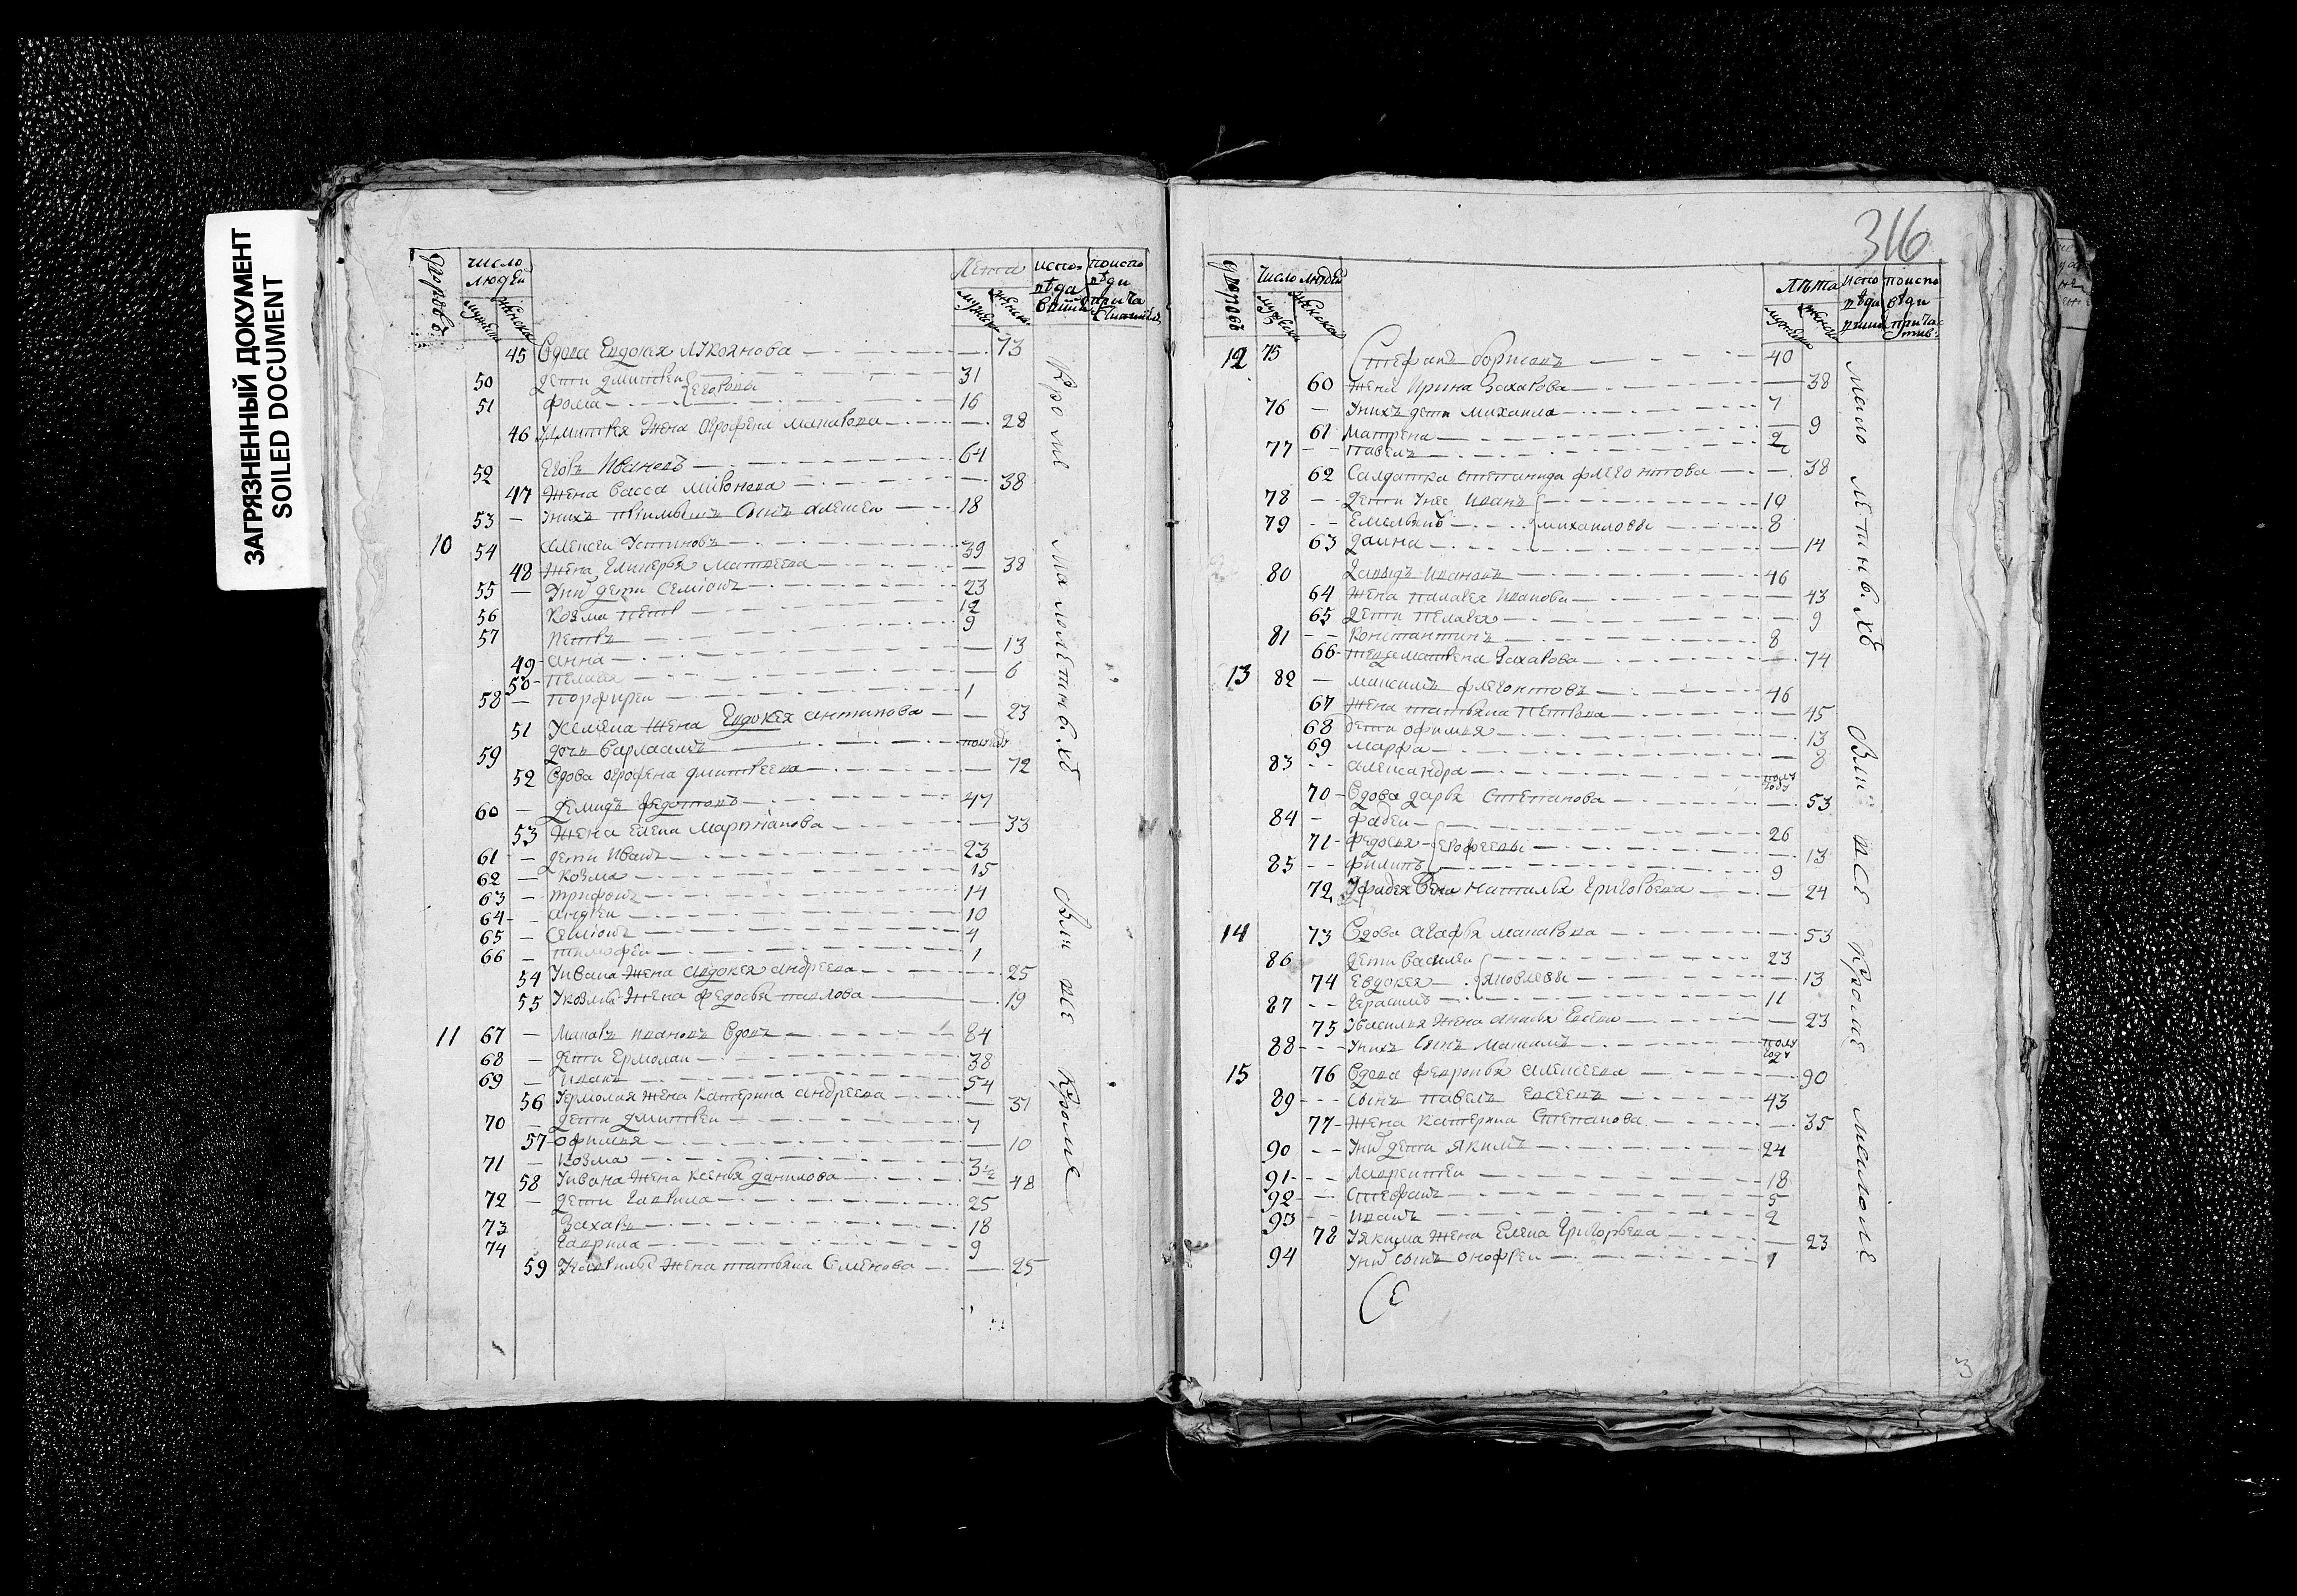 ЗАГРЯЗНЕННЫЙ ДОКУМЕНТ
SOILED DOCUMENT
число людей
Лета
испо- веда
поиспо веди прича
45 Вдова Евдокея Лукоянова 73
50 дети дмитреи 31
51 фома Егоровы 16
46 Удмитрея жена Огрофена макарова 28
52 Егоръ Ивановъ 64
47 жена Васса миронова 38
53 Унихъ приимышъ Сынъ алексеи 18
10 54 алексеи Устиновъ 39
48 жена Гликерья Матвеева 38
55 дети Семионъ 23
56 Козма 12
57 Петръ 9
49 анна 13
50 пелагея 6
58 порфиреи 1
51 жена Евдокея антипова 23
59 Варлаамъ
52 Вдова огрофена дмитреева 72
60 демидъ федотовъ 47
53 жена Елена Мартианова 33
61 дети Иванъ 23
62 козма 15
63 трифонъ 14
64 андреи 10
65 Семионъ 4
66 тимофеи 1
54 Уивана жена авдокея андреева 25
55 Укозмы жена федосья павлова 19
11 67 Макаръ ивановъ Вдовъ 84
68 дети Ермолаи 38
69 иванъ 54
56 Уермолая жена катерина андреева 31
70 дети дмитреи 7
57 офимья 10
71 козма 3½
58 Уивана жена ксенья данилова 48
72 дети гаврила 25
73 Захаръ 18
74 гаврила 9
59 Угаврилы жена татьяна Семенова 25
Кроме малолетныхъ Вли все Кроме
316
число людей
лѣта
12 75 Стефанъ борисовъ 40
60 жена Ирина Захарова 38
76 Унихъ дети михаила 7
61 матрена 9
77 павелъ 2
62 Салдатка степанида флегонтова 38
78 дети Унее иванъ 19
79 Емельянъ михаиловы 8
63 14
80 давыдъ ивановъ 46
64 жена палагея иванова 43
65 дети пелагея 9
81 константинъ 8
66 Захарова 74
13 82 максимъ флегонтовъ 46
67 жена татьяна петрова 45
68 дети офимья 13
69 марфа 8
83 александра полу году
70 Вдова дарья Степанова 53
84 фадеи 26
71 федосья ерофеевы 13
85 филипъ 9
72 Уфадея жена наталья григорьева 24
14 73 Вдова агафья макарова 53
86 дети василеи 23
74 Евдокея яковлевы 13
87 герасимъ 11
75 Увасилья жена 23
88 Унихъ сынъ полу году
15 76 Вдова февронья алексеева 90
89 сынъ павелъ Евсеевъ 43
77 жена катерина Степанова 35
90 дети якимъ 24
91 лаврентеи 18
92 Стефанъ 5
93 иванъ 2
78 Уякима жена Елена григорьева 23
94 сынъ онофреи 1
мало летныхъ Вли все кроме малоле
3